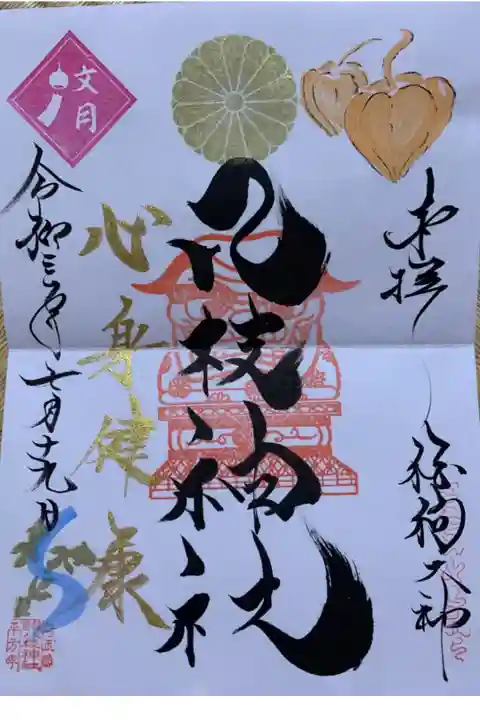 奉拝
狛狗大神
八枝神社
心身健康
令和三年七月十九日
文月